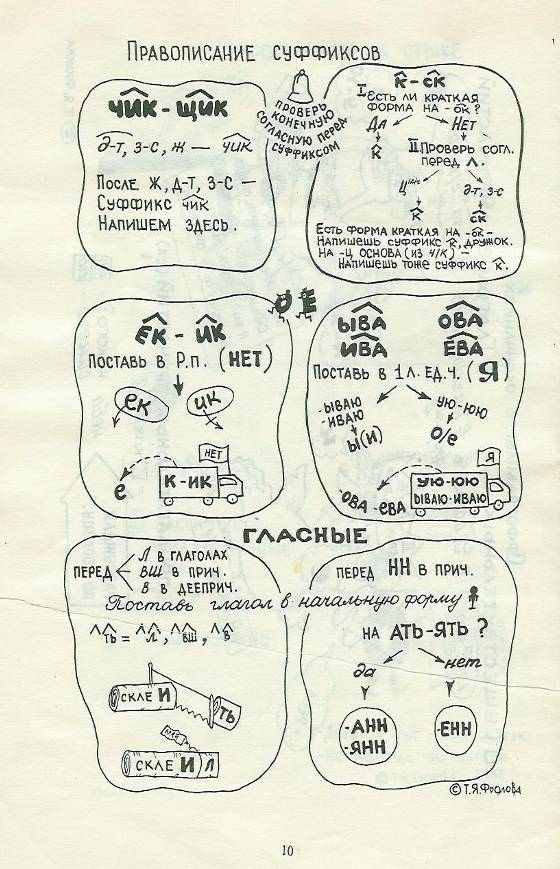 ПРАВОПИСАНИЕ СУФФИКСОВ
ЧИК - ЩИК
Д-Т, З-С, Ж — ЧИК
ПОСЛЕ Ж, Д-Т, З-С —
СУФФИКС ЧИК
НАПИШЕМ ЗДЕСЬ.
ПРОВЕРЬ
КОНЕЧНУЮ
СОГЛАСНУЮ ПЕРЕД
СУФФИКСОМ
К - СК
I ЕСТЬ ЛИ КРАТКАЯ
ФОРМА НА -ОК?
ДА НЕТ
К II ПРОВЕРЬ СОГЛ.
ПЕРЕД Л.
Ц Д-Т, З-С
К СК
ЕСТЬ ФОРМА КРАТКАЯ НА -ОК-
НАПИШЕШЬ СУФФИКС К, ДРУЖОК.
НА -Ц ОСНОВА (ИЗ Ч/К) —
НАПИШЕШЬ ТОЖЕ СУФФИКС К.
О Е
ЕК - ИК
ПОСТАВЬ В Р.П. (НЕТ)
ЕК ИК
НЕТ
Е К-ИК
ЫВА ОВА
ИВА ЕВА
ПОСТАВЬ В 1 Л. ЕД.Ч. (Я)
-ЫВАЮ УЮ-ЮЮ
-ИВАЮ
Ы(И) О/Е
Я
ОВА-ЕВА УЮ-ЮЮ
ЫВАЮ-ИВАЮ
ГЛАСНЫЕ
ПЕРЕД Л В ГЛАГОЛАХ
ВШ В ПРИЧ.
В В ДЕЕПРИЧ.
ПЕРЕД НН В ПРИЧ.
Поставь глагол в начальную форму
ТЬ = Л, ВШ, В
НА АТЬ-ЯТЬ?
да нет
СКЛЕИ ТЬ
СКЛЕИЛ
-АНН
-ЯНН
-ЕНН
© Т.Я.Фролова
10